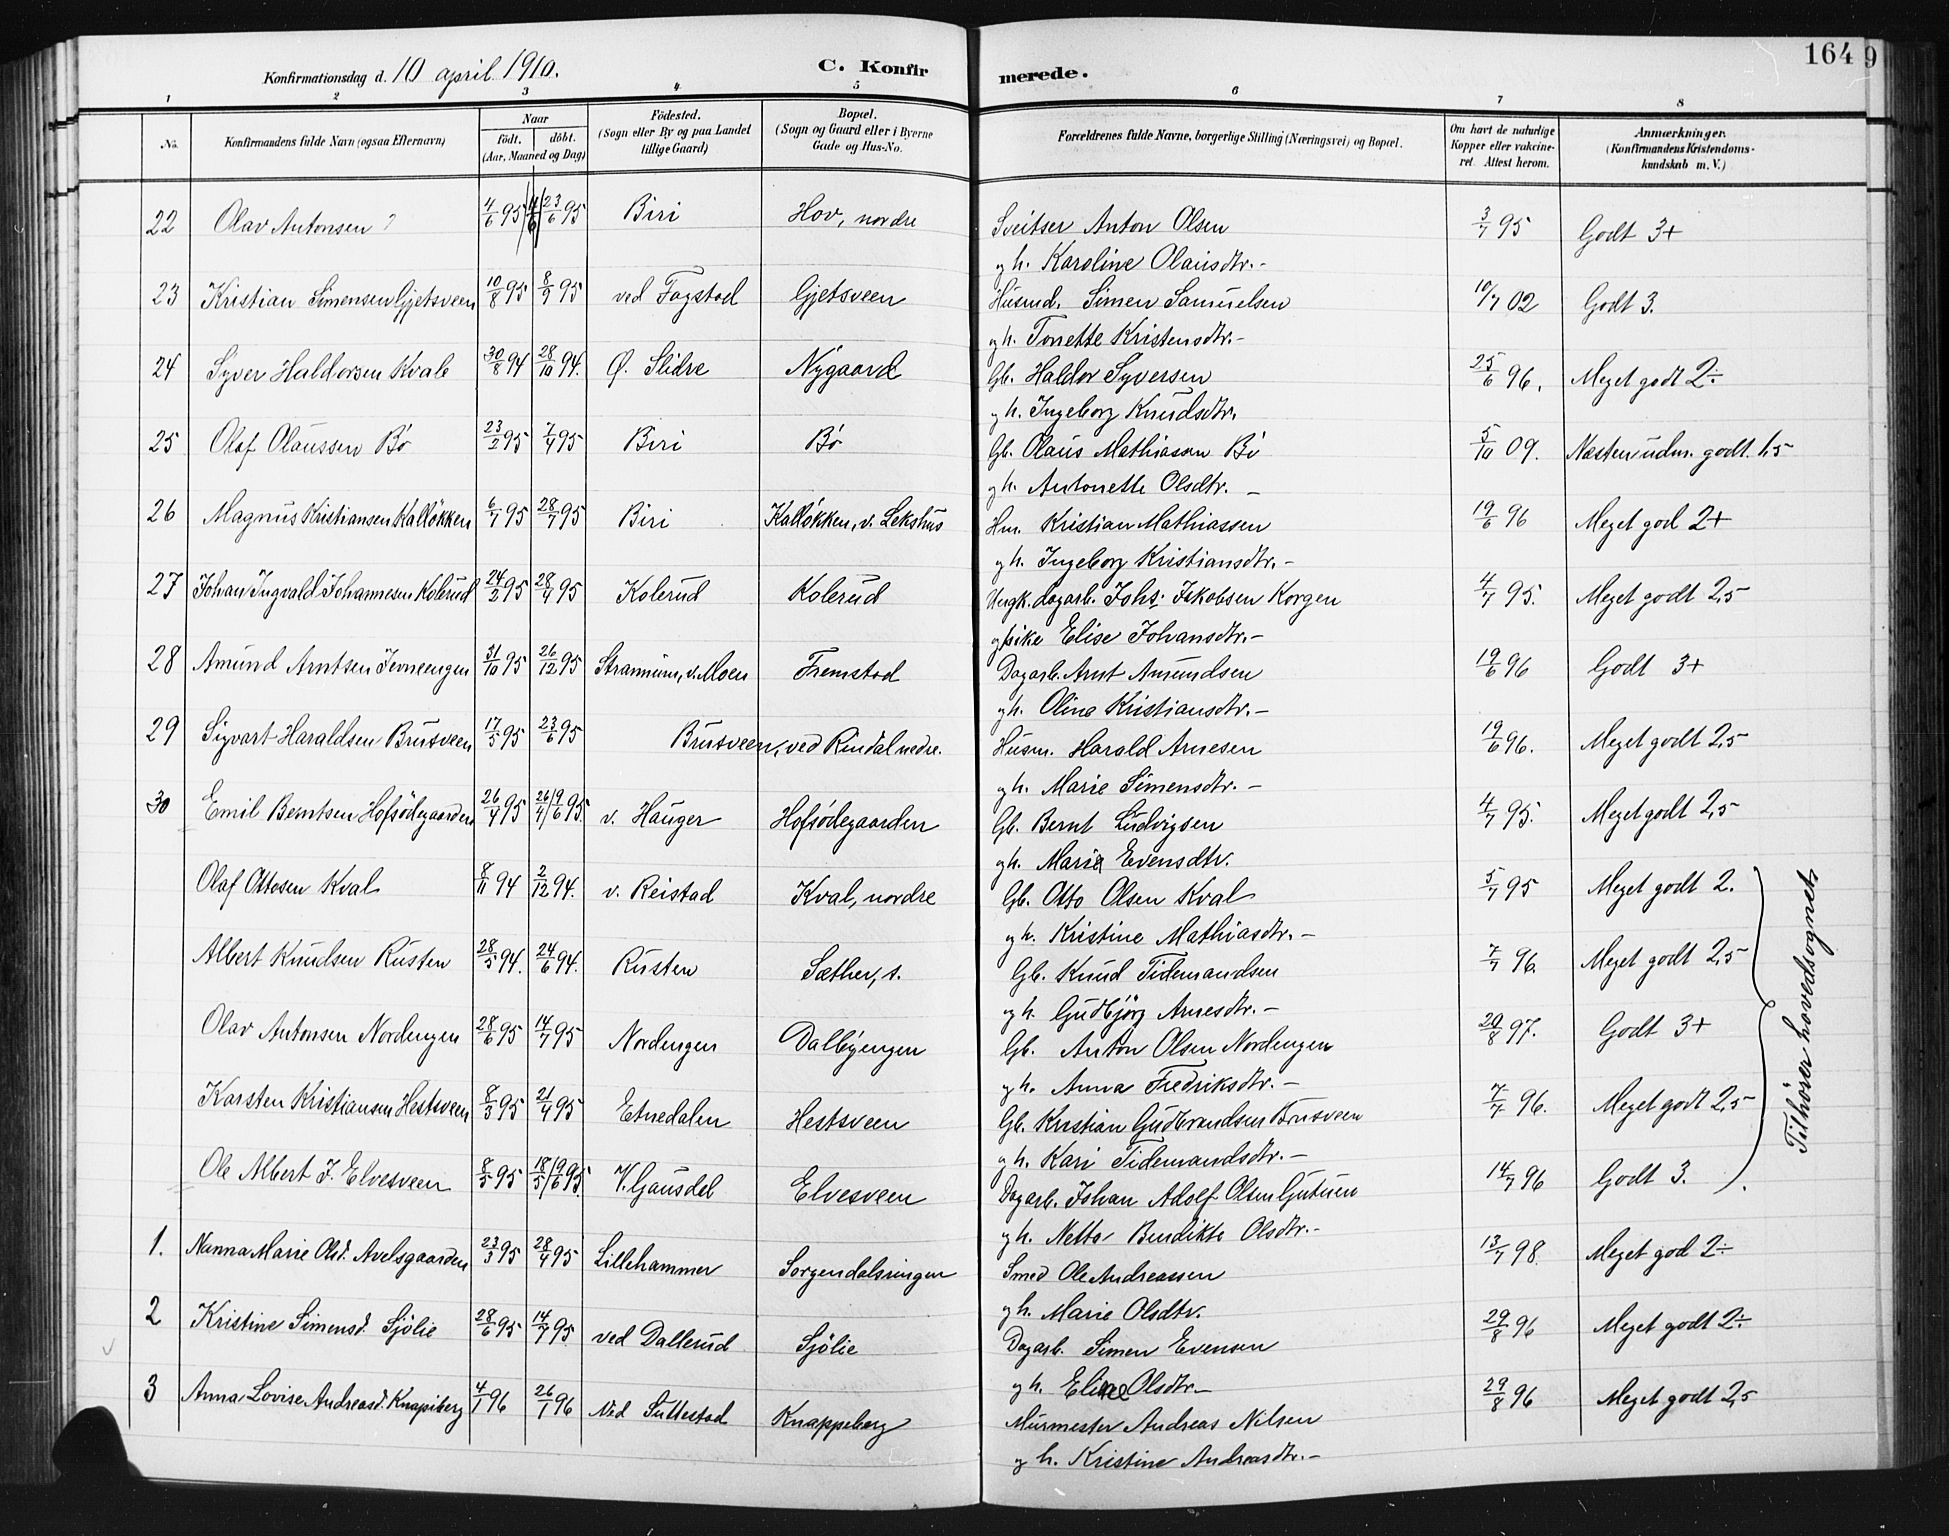 Konfirmationsdag d. 10 april 1910.
C. Konfirmerede.
164 9
1 2 3 4 5 6 7 8
No.
Konfirmandens fulde Navn (ogsaa Efternavn)
Naar født. døbt. (Aar, Maaned og Dag)
Fødested. (Sogn eller By og paa Landet tillige Gaard)
Bopæl. (Sogn og Gaard eller i Byerne Gade og Hus-No.
Forældrenes fulde Navne, borgerlige Stilling (Næringsvei) og Bopæl.
Om havt de naturlige Kopper eller vakcineret. Attest herom.
Anmærkninger. (Konfirmandens Kristendomskundskab m. V.)
22 Olav Antonsen 4/6 95 23/6 95 Biri Hov, nordre Sveitser Anton Olsen 3/7 95 Godt 3+
og h. Karoline Olausdtr.-
23 Kristian Simensen Gjetsveen 10/8 95 8/9 95 ved Fagstad Gjetsveen Husmd. Simen Samuelsen 10/7 02 Godt 3.
og h. Tonette Kristensdtr.-
24 Syver Haldorsen Kvale 30/8 94 28/10 94. Ø. Slidre Nygaard Gb. Haldor Syversen 25/6 96. Meget godt 2÷
og h. Ingeborg Knudsdtr.
25 Olaf Olaussen Bø 23/2 95 7/4 95 Biri Bø Gb. Olaus Mathiassen Bø 5/10 09. Næsten udm. godt. 1,5
og h. Antonette Olsdtr. -
26 Magnus Kristiansen Kalløkken 6/7 95 28/7 95 Biri Kalløkken, v. Lekshus Hm. Kristian Mathiassen 19/6 96 Meget god 2+
og h. Ingeborg Kristiansdtr.-
27 Johan Ingvald Johannesen Kolerud 24/2 95 28/4 95 Kolerud Kolerud Ungk. dagarb. Johs. Jakobsen Korgen 4/7 95. Meget godt 2,5
og pike Elise Johansdtr.-
28 Amund Arntsen Jevneengen 31/10 95 26/12 95 Strammum, v. Moen Fremstad Dagarb. Arnt Amundsen 19/6 96 Godt 3+
og h. Oline Kristiansdtr.-
29 Sigvart Haraldsen Brusveen 17/5 95 23/6 95 Brusveen, ved Rindal nedre. Husm. Harald Arnesen 19/6 96. Meget godt 2,5
og h. Marie Simensdtr. -
30 Emil Berntsen Hofsødegaarden 26/4 95 26/4 / 9/6 95. v. Hauger Hofsødegaarden Gb. Bernt Ludvigsen 4/7 95. Meget godt 2,5
og h. Marie Evensdtr.
Olaf Ottosen Kval 8/11 94 2/12 94. v. Reistad Kval, nordre Gb. Otto Olsen Kval 5/7 95 Meget godt 2.
og h. Kristine Mathiasdtr.-
Albert Knudsen Rusten 28/5 94. 24/6 94. Rusten Sæther, s. Gb. Knud Tidemandsen 7/7 96. Meget godt 2,5
og h. Gudbjørg Arnesdtr.-
Olav Antonsen Nordengen 28/6 95 14/7 95 Nordengen Dalbyengen Gb. Anton Olsen Nordengen 20/8 97. Godt 3+
og h. Anna Fredriksdtr.-
Karsten Kristiansen Hestsveen 8/3 95 21/4 95 Etnedalen Hestsveen Gb. Kristian Gudbrandsen Brusveen 7/7 96. Meget godt 2,5
og h. Kari Tidemandsdtr.-
Ole Albert J. Elvesveen 8/5 95 18/5 / 9/6 95. V. Gausdal Elvesveen Dagarb. Johan Adolf Olsen Gutuen 14/7 96 Godt 3.
og h. Nette Bendikte Olsdtr.-
Tilhører hovedsognet
1. Nanna Marie Olsd. Avelsgaarden 23/3 95 28/4 95 Lillehammer Sorgendalsringen Smed Ole Andreassen 13/7 98. Meget god 2÷
og h. Marie Olsdtr.
2 Kristine Simensd. Sjølie 28/6 95 14/7 95. ved Dallerud Sjølie Dagarb. Simen Evensen 29/8 96 Meget godt 2÷
og h. Eline Olsdtr.-
3 Anna Lovise Andreasd. Knapiberg 4/1 96 26/1 96 Ved Suttestad Knappeberg Murmester Andreas Nilsen 29/8 96 Meget godt 2,5
og h. Kristine Andreasdtr.-